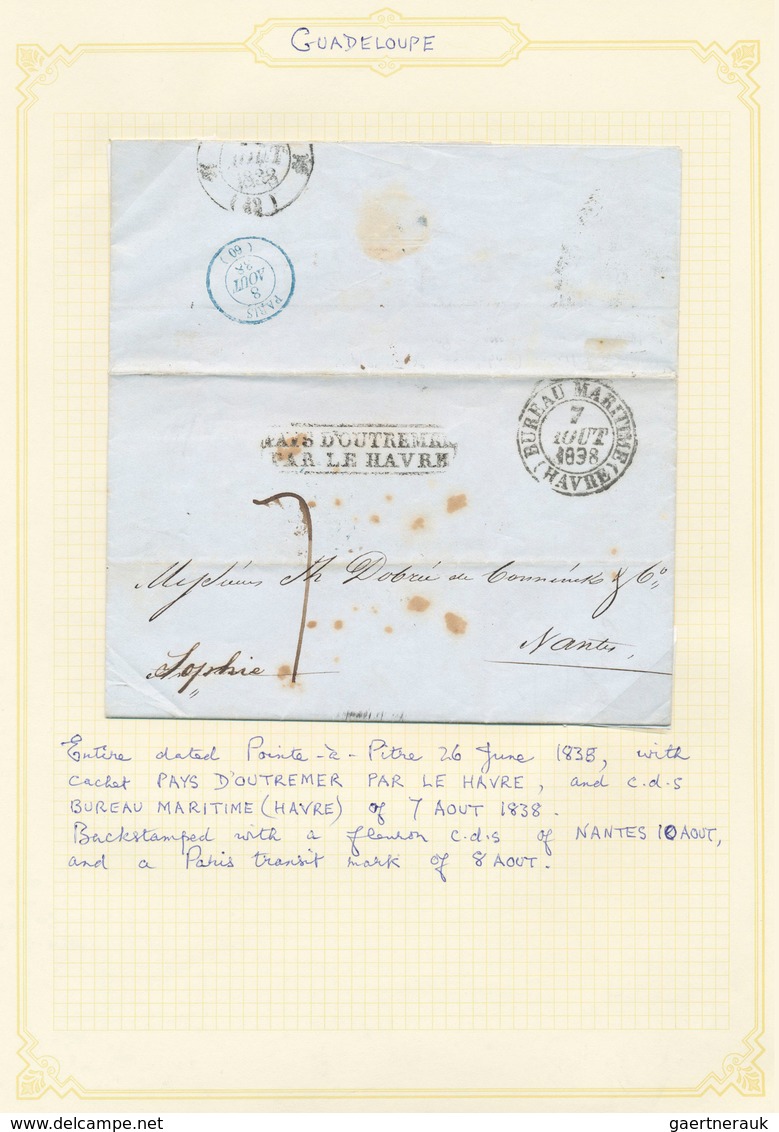 GUADELOUPE
AOUT
1838
(42)
PARIS
8
AOUT
38
(60)
BUREAU MARITIME
7
AOUT
1838
(HAVRE)
PAYS D'OUTREMER
PAR LE HAVRE
7
Messieurs Th Dobrée de & Co
Nantes
Sophie
Entire dated Pointe-à-Pitre 26 June 1838, with
cachet PAYS D'OUTREMER PAR LE HAVRE, and c.d.s
BUREAU MARITIME (HAVRE) of 7 AOUT 1838.
Backstamped with a fleuron c.d.s of NANTES 10 AOUT,
and a Paris transit mark of 8 AOUT.
gaertnerauk